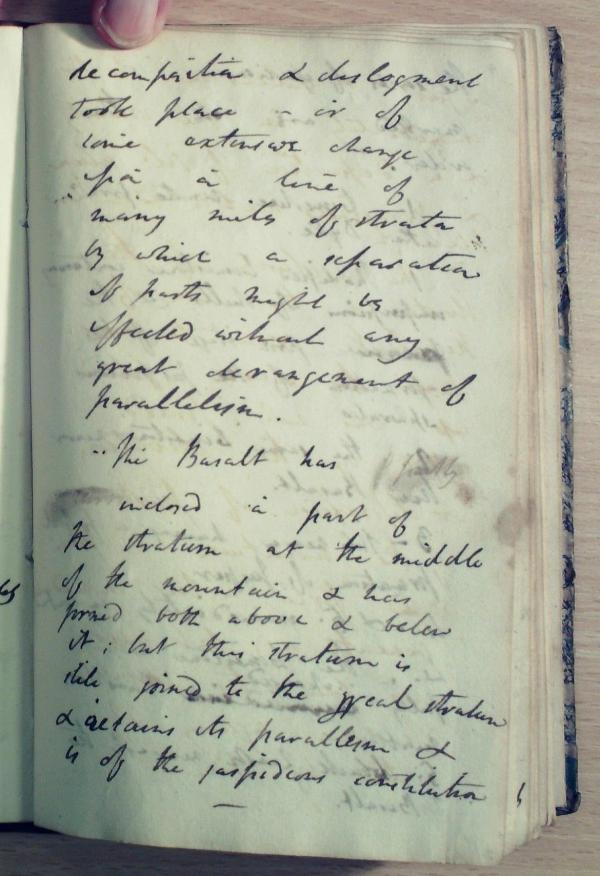 decomposition & dislogment
took place - or of
some extensive change
in a line of
many miles of strata
by which a separation
of parts might be
effected without any
great derangement of
parallelism.
- The Basalt has
inclosed a part of
the stratum at the middle
of the mountain & has
joined both above & below
it; but this stratum is
still joined to the great stratum
& retains its parallesm &
is of the jaspideous constitution